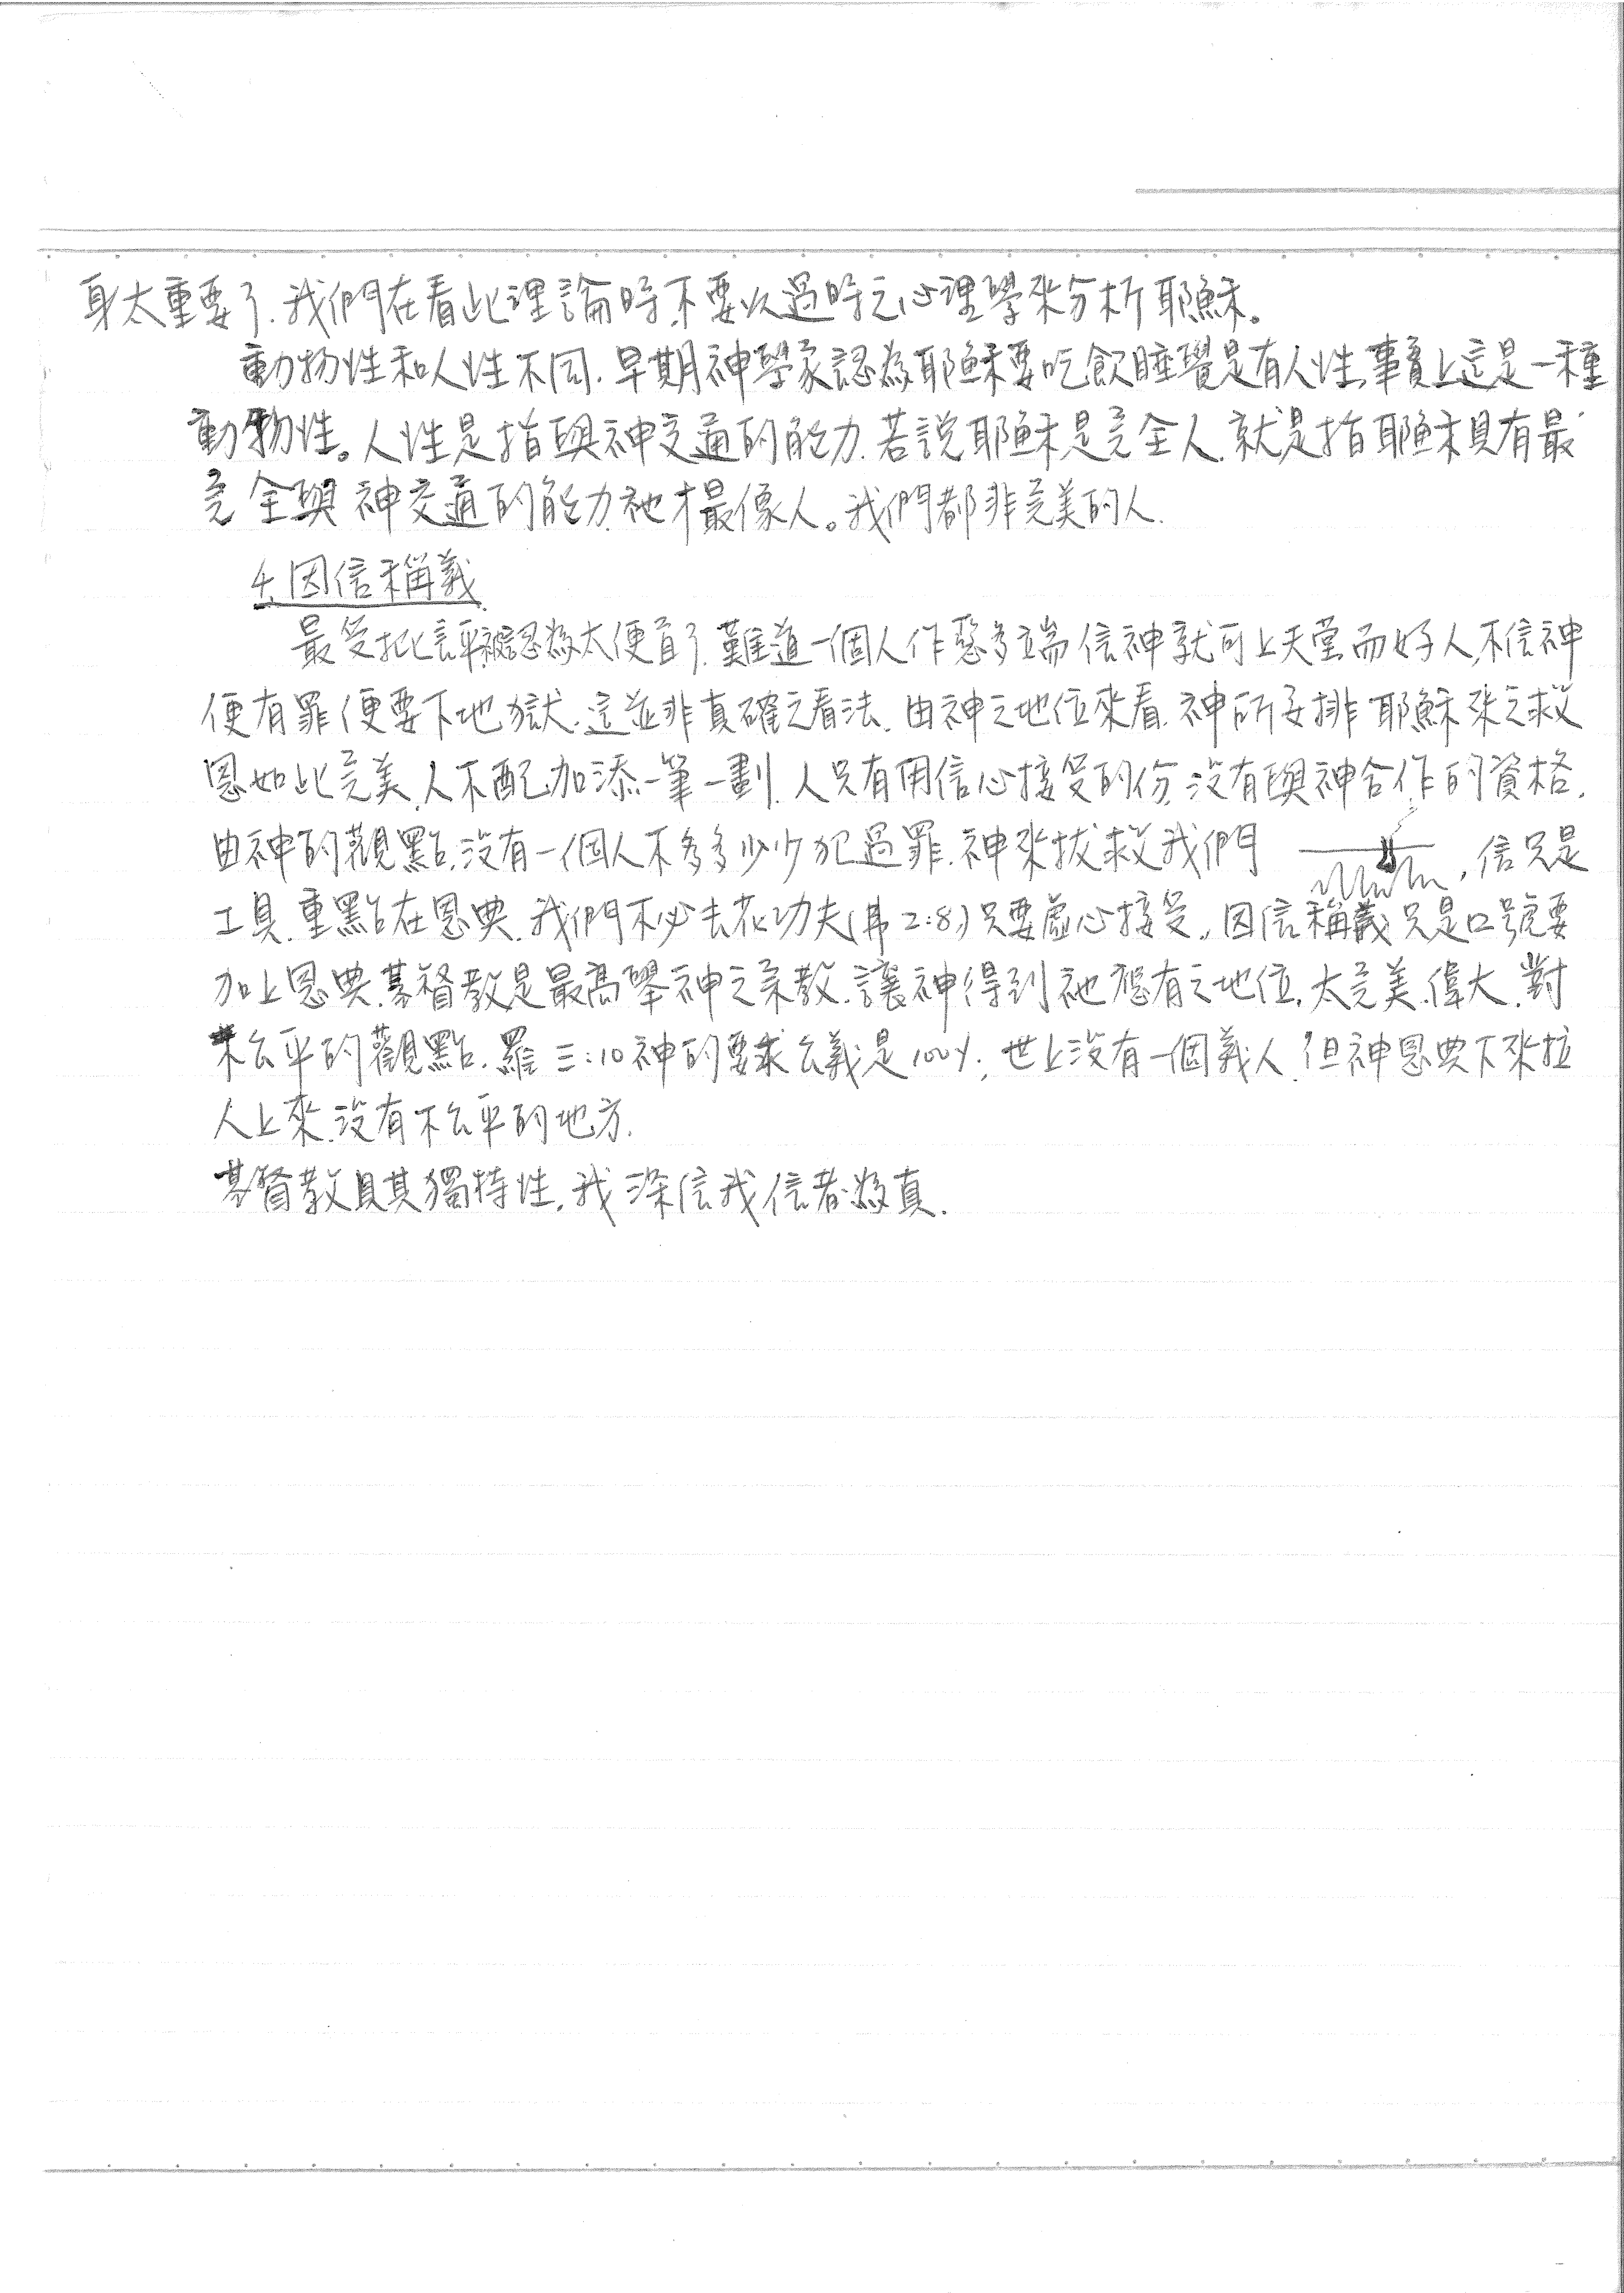 身太重要了.我們在看此理論時,不要以過時之心理學來分析耶穌。
動物性和人性不同.早期神學家認為耶穌要吃飲睡覺是有人性,事實上這是一種
動物性。人性是指與神交通的能力.若說耶穌是完全人.就是指耶穌具有最
完全與神交通的能力.祂才最像人。我們都非完美的人.
4.因信稱義
最受批評被認為太便宜了.難道一個人作惡多端信神就可上天堂而好人,不信神
便有罪便要下地獄.這並非真確之看法.由神之地位來看.神所安排耶穌來之救
恩如此完美,人不配加添一筆一劃.人只有用信心接受的份,沒有與神合作的資格.
由神的觀點,沒有一個人不多多少少犯過罪.神來拔救我們 ,信只是
工具.重點在恩典.我們不必去花功夫(弗2:8)只要虛心接受.因信稱義只是口號要
加上恩典.基督教是最高舉神之宗教.讓神得到祂應有之地位.太完美.偉大.對
不公平的觀點.羅三:10神的要求公義是100%,世上沒有一個義人.但神恩典下來拉
人上來.沒有不公平的地方.
基督教具其獨特性.我深信我信者為真.